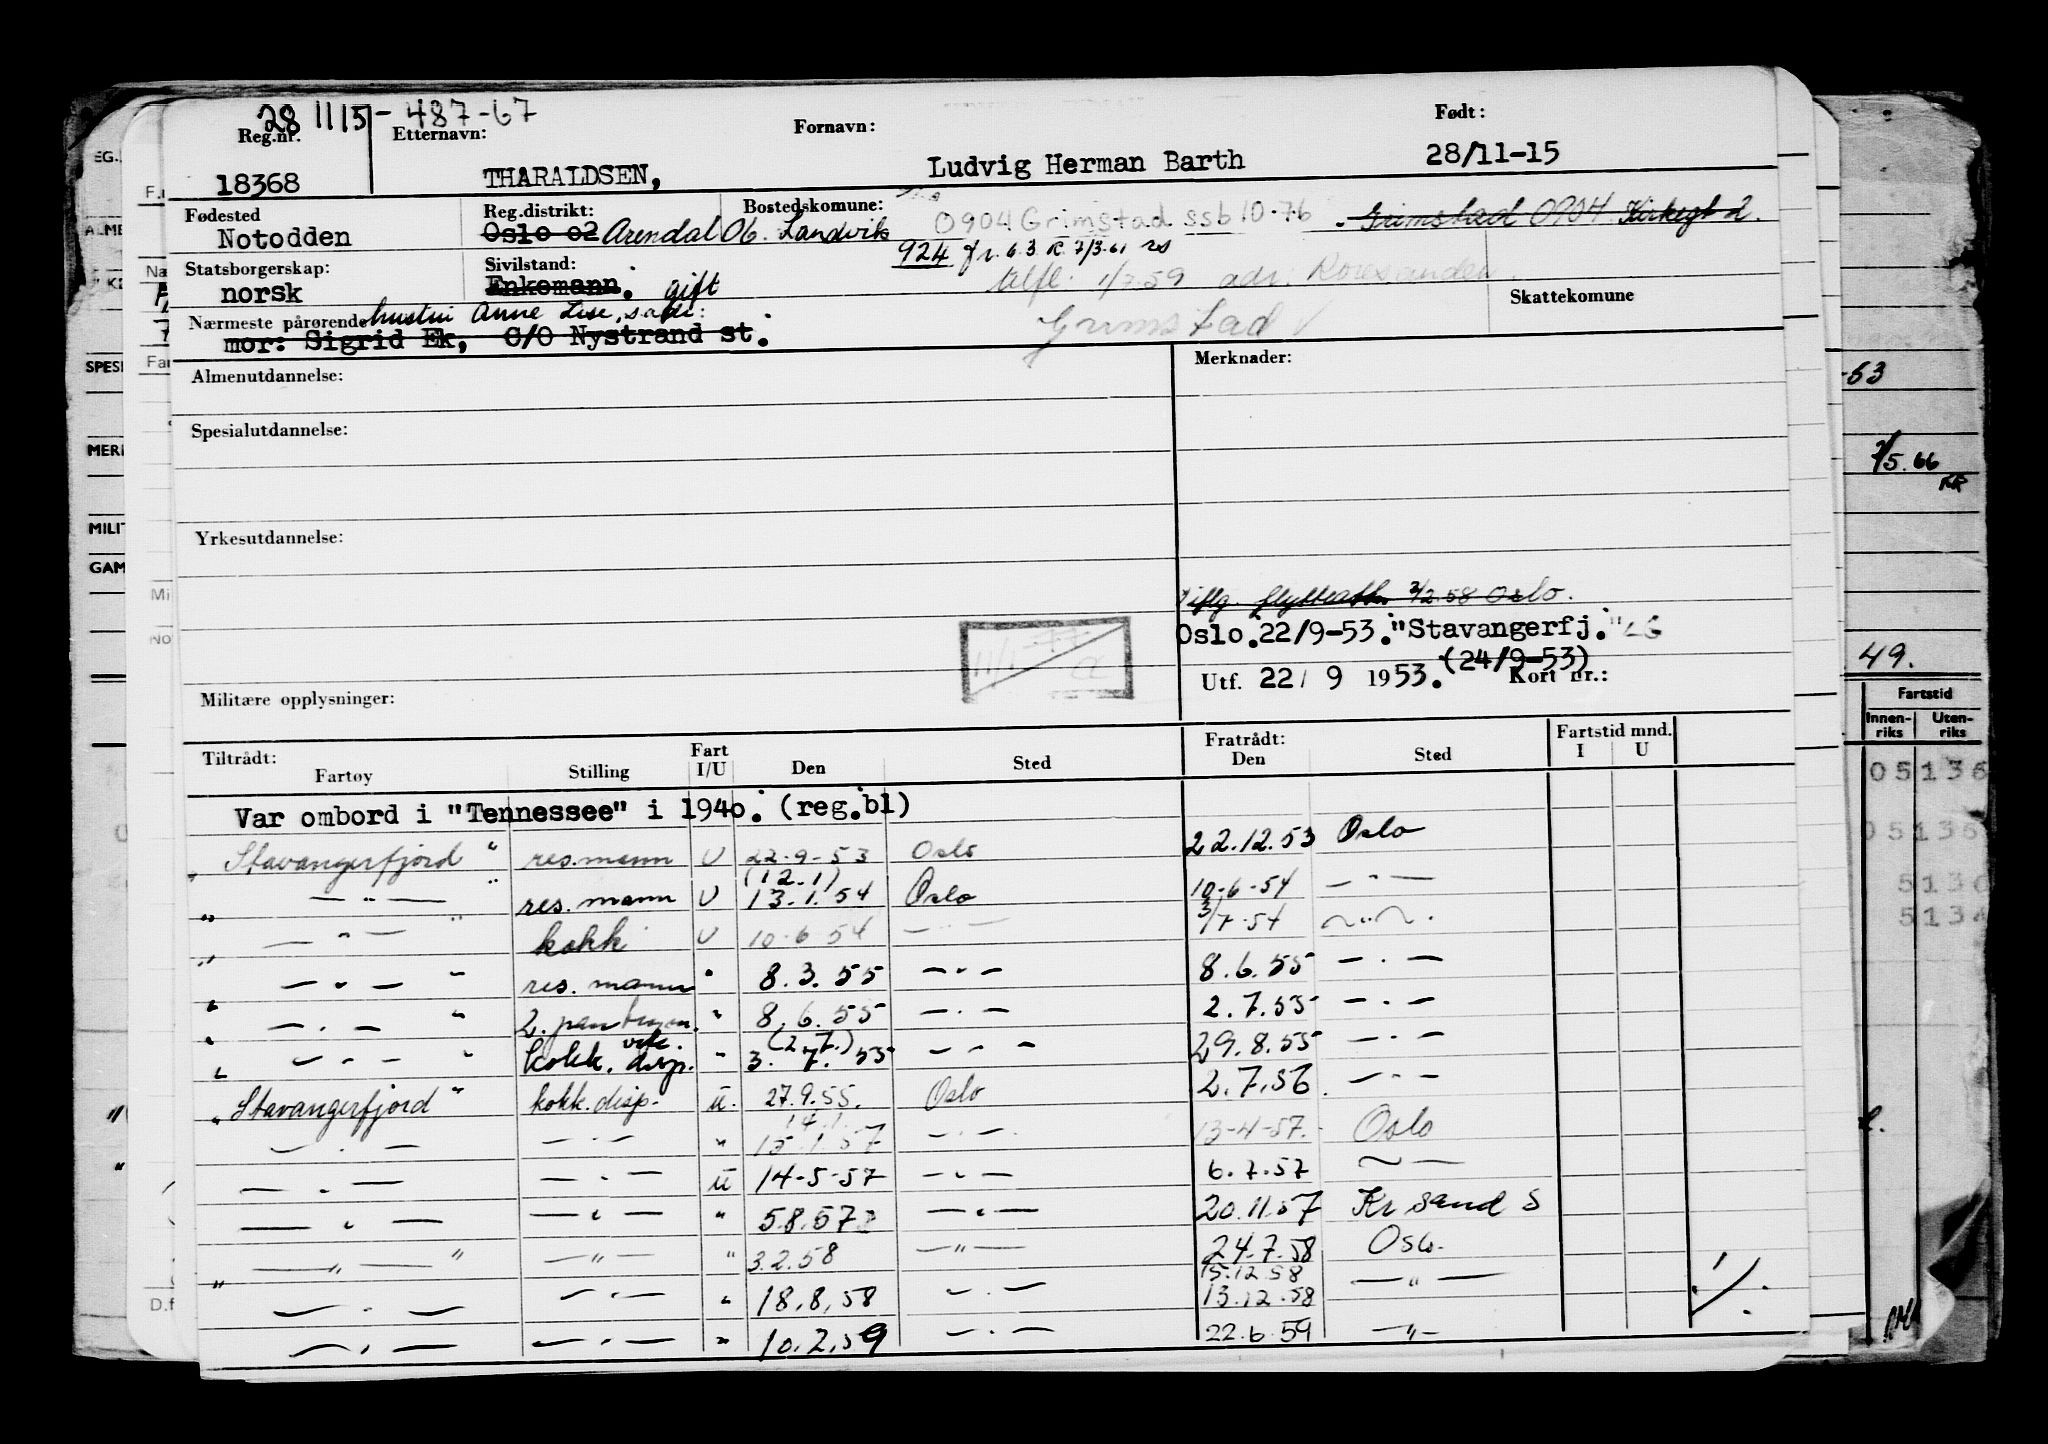 28 11 15 - 487-67
Reg.nr. Etternavn: Fornavn: Født:
18368 THARALDSEN, Ludvig Herman Barth 28/11-15
Fødested Reg.distrikt: Bostedskomune:
Notodden Oslo o2 Arendal 06. Landvik 0904 Grimstad ssb 10-76 - Grimstad 0904 Kirkegt 2.
924 fr. 6.3. R. 7/3-61
Statsborgerskap: Sivilstand:
norsk Enkemann. gift 1/7.59 adr.
Skattekomune
Nærmeste pårørende hustru Anne Lise, s.adr:
Grimstad
mor: Sigrid Ek, C/O Nystrand st.
Almenutdannelse: Merknader:
Spesialutdannelse:
Yrkesutdannelse:
3/2.58 Oslo.
Oslo.22/9-53."Stavangerfj."
(24/9-53)
Utf. 22/ 9 1953. Kort nr.:
Militære opplysninger:
Tiltrådt: Fartøy Stilling Fart I/U Den Sted Fratrådt: Den Sted Fartstid mnd. I U
Var ombord i "Tennessee" i 1940. (reg.bl)
"Stavangerfjord" res.mann U 22-9-53 Oslo 22.12.53 Oslo
(12.1)
" — " — " res. mann U 13.1.54 Oslo 10-6-54 — " —
" — " — " kokk U 10-6-54 — " — 3/7-54 — " —
" — " — " res. mann " 8.3.55 — " — 8.6.55 — " —
" — " — " 2. pantrym. " 8.6.55 — " — 2.7.55 — " —
(2.7.)
" — " — " kokk. disp. " 3.7.55 — " — 29.8.55 — " —
"Stavangerfjord" kokk.disp. U. 27.9.55. Oslo 2.7.56. — " —
14.1.
— " — — " — " 15.1.57 — " — 13-4-57. Oslo
— " — — " — U 14-5-57 — " — 6.7.57 — " —
— " — — " — " 5.8.57 — " — 20.11.57 Kr sand S
" — " — " — " — " 3.2.58 — " — 24.7.58 Oslo.
15.12.58
— " — — " — " 18.8.58 — " — 13.12.58 — " —
— " — — " — " 10.2.59 — " — 22.6.59 — " —
-53
7/5.66
49.
Fartstid
Innen-riks Uten-riks
05136
5136
5134
SPES
MERI
MILIT
GAM
D.f